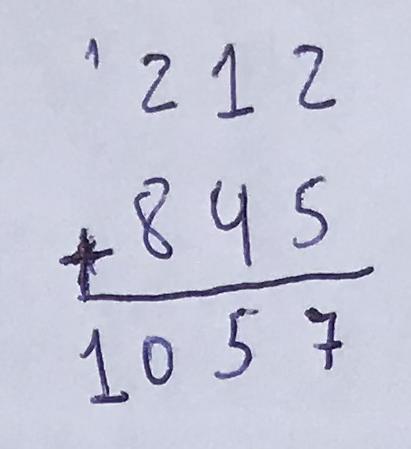 1 2 1 2
+ 8 4 5
1 0 5 7